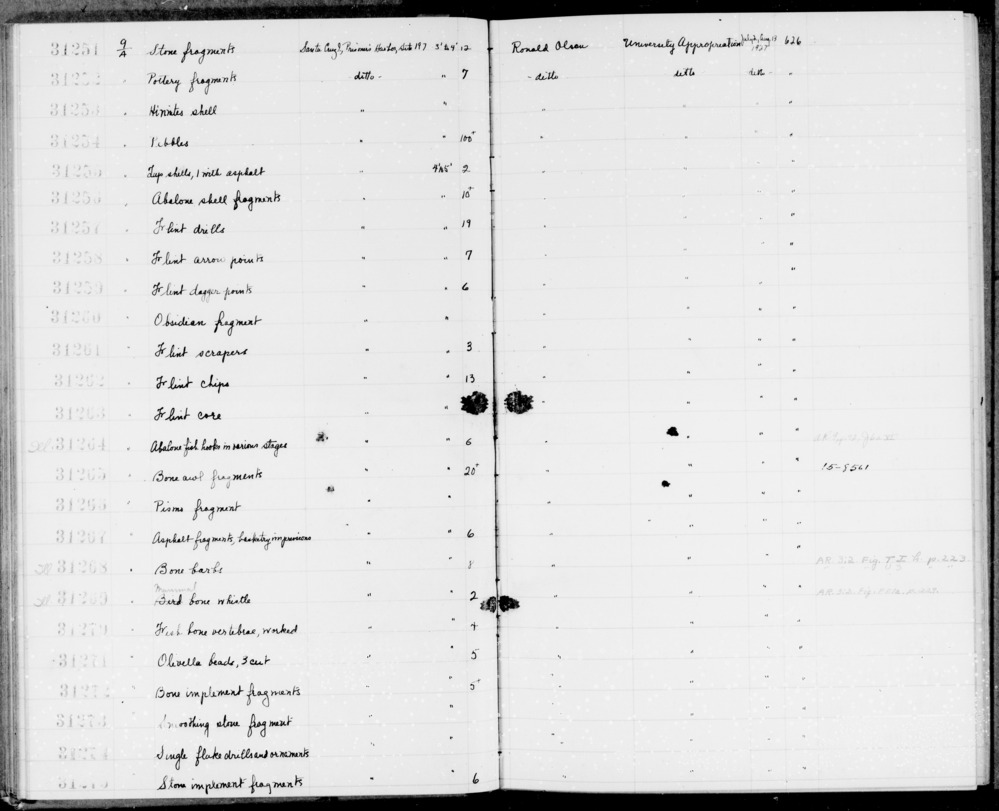 31251 9/A Stone fragments Santa Cruz I, Prisoner's Harbor, Site 197 3' to 4' 12 Ronald Olson University Appropriation July 2, Aug 19 1927 626
31252 . Pottery fragments ditto - " 7 - ditto ditto ditto - "
31253 . Hinnites shell " " " " "
31254 . Pebbles " " 100+ " " " "
31255 . shells, 1 with asphalt " 4' to 5' 2 " " " "
31256 . Abalone shell fragments " " 10+ " " " "
31257 . Flint drills " " 19 " " " "
31258 . Flint arrow points " " 7 " " " "
31259 . Flint dagger points " " 6 " " " "
31260 . Obsidian fragment " " " " " "
31261 . Flint scrapers " " 3 " " " "
31262 . Flint chips " " 13 " " " "
31263 . Flint core " " " " "
31264 . Abalone fish hooks in various stages " 6 " " "
31265 . Bone awl fragments " " 20+ " " " " 15-9561
31266 Pismo fragment " " " " " "
31267 Asphalt fragments, basketry impressions " 6 " " " "
31268 . Bone barbs " " 8 " " " " AR 3:2 Fig. p. 223
31269 . Mammal Bird bone whistle " " 2 " " " AR 3:2 Fig.
31270 . Fish bone vertebrae, worked " " 4 " " " "
31271 . Olivella beads, 3 cut " " 5 " " " "
31272 . Bone implement fragments " " 5+ " " " "
31273 . Smoothing stone fragment " " " " " "
31274 . Single flake drills and ornaments " " " " "
31275 . Stone implement fragments " " 6 " " " "